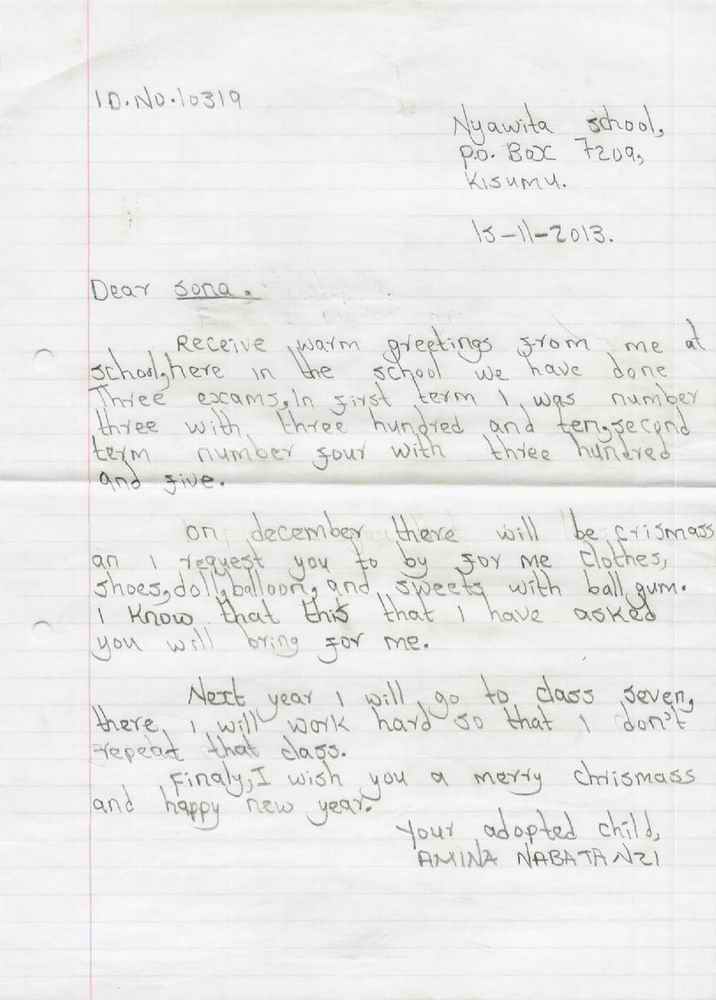 ID.NO.10319
Nyawita school,
P.O. BOX 7209,
KISUMU.
15-11-2013.
Dear sona.
Receive warm greetings from me at
school,here in the school we have done
Three exams,In first term I was number
three with three hundred and ten,second
term number four with three hundred
and five.
On december there will be crismass
an I request you to by for me clothes,
shoes,doll,balloon, and sweets with ball gum.
I know that this that I have asked
you will bring for me.
Next year I will go to class seven,
there I will work hard so that I don't
repeat that class.
Finaly,I wish you a merry chrismass
and happy new year.
Your adopted child,
AMINA NABATANZI